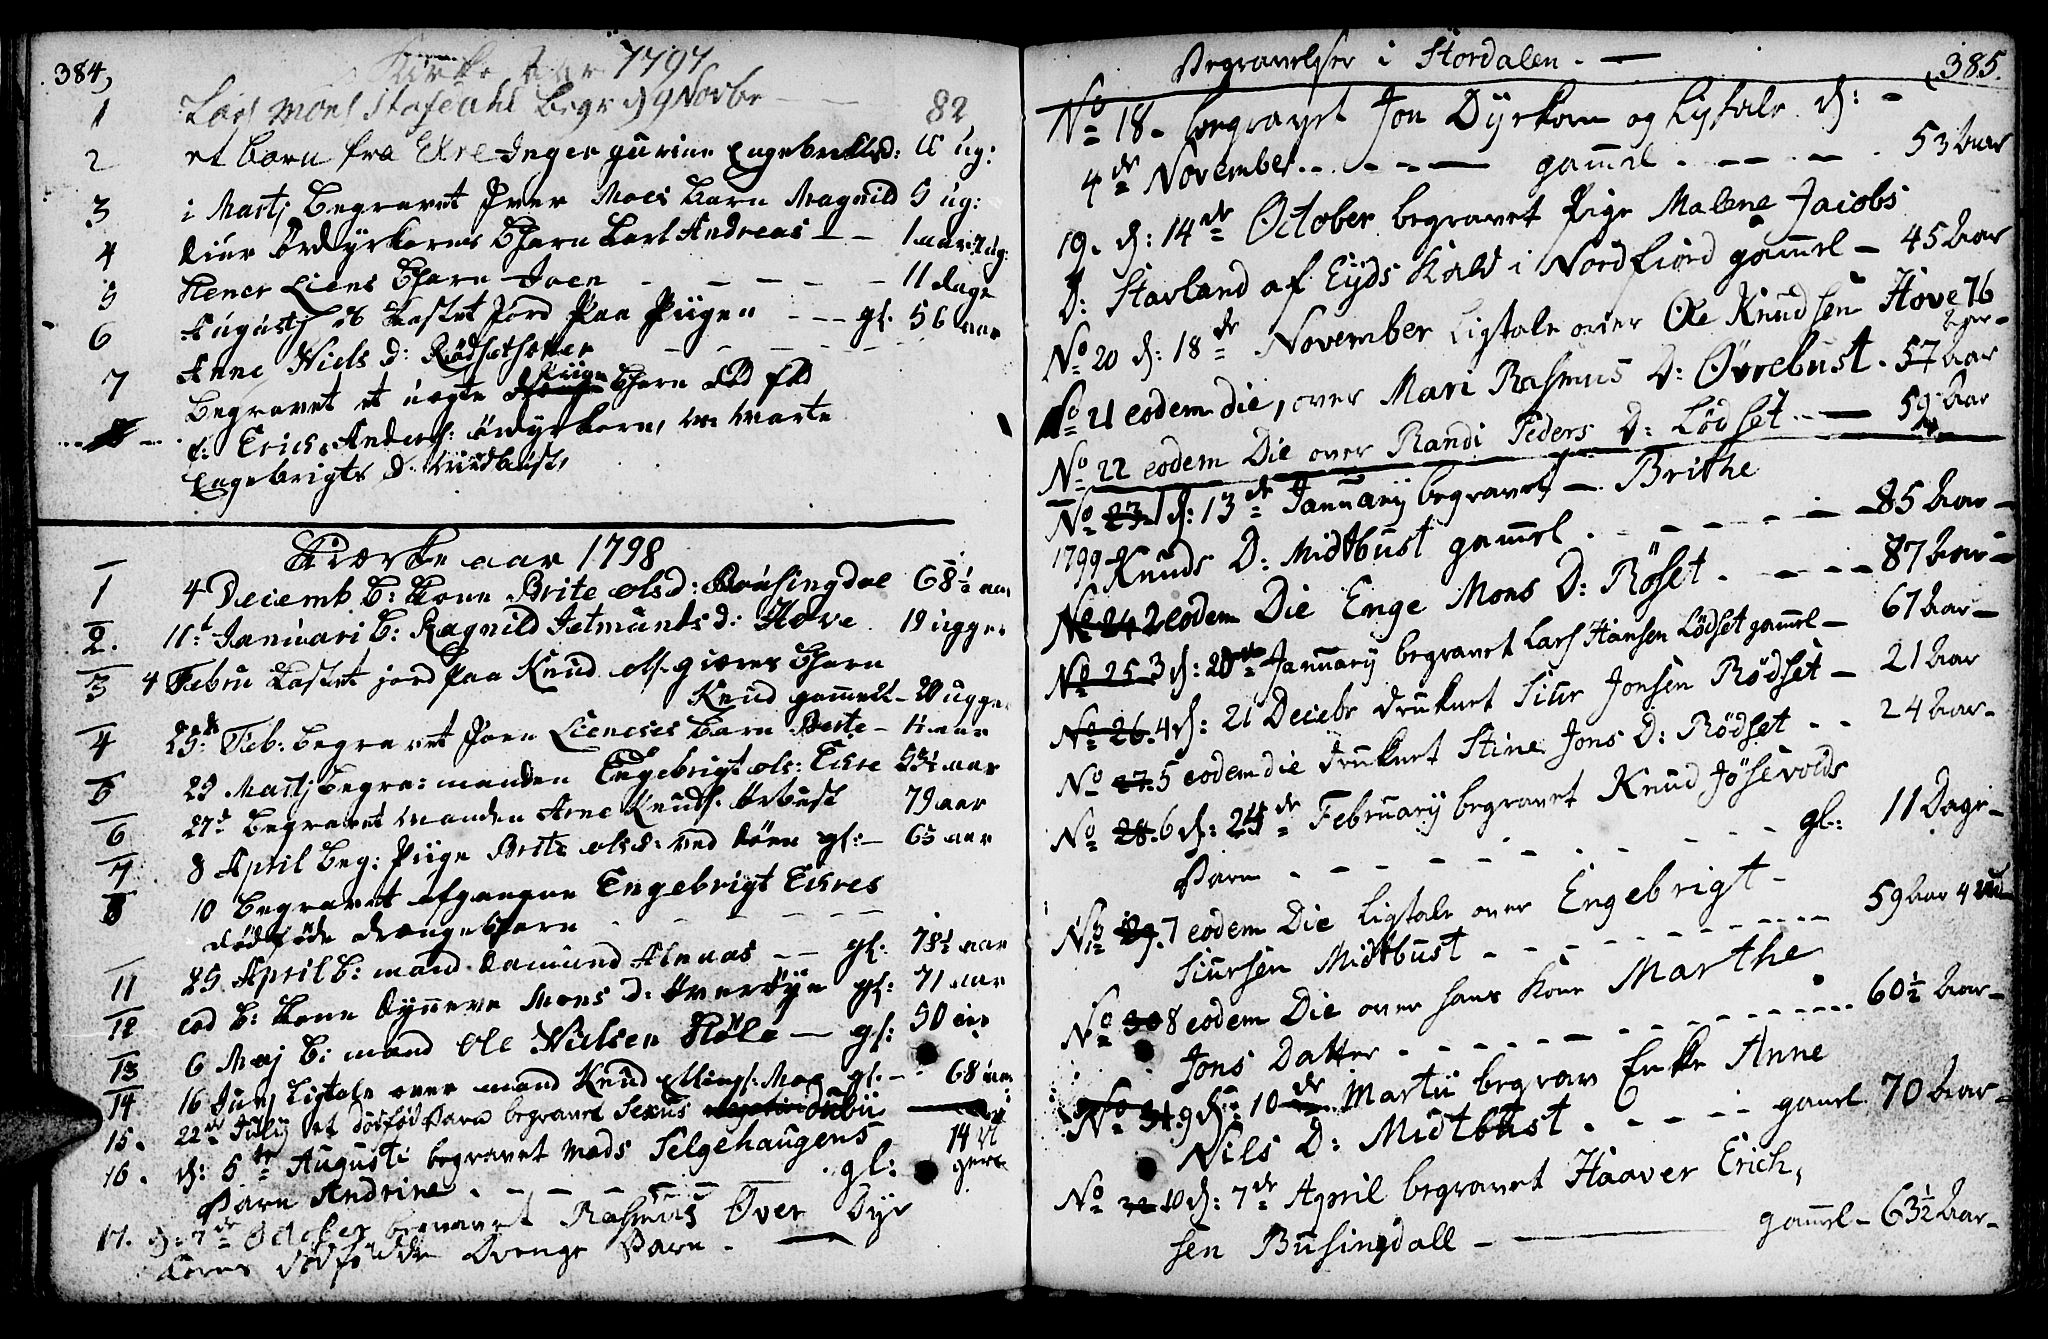 384,
Kirke Aar 1797
1 Lars Mons Stafsdahl Begr d 9 Novbr - - 82
2 et barn fra Exre Inger gurine Engebretsd: 11 ug:
3 i Martj Begravet Iver Moes barn Magnild 5 ug:
4 Siur Ördyrkorns Barn Carl Andreas - - 1 aar 7 ug:
5 Stener Liens Barn Joen - - - - 11 dage
6 Augustj kastet jord paa Piigen - - - gl. 56 aar
Anne Niels D: Rødsethover
7 Begravet et uægte Piige Barn død fød
f: Erich Anders: ördyrkorn, M: Marte
Engebrigts D: Midtbust,
Kiærke aar 1798
1 4 Decemb. b: kone Brite olsd: Bousingdal 68½ aar
2. 11t Januari b: Ragnild Jetmundsd: Hove 19 ugger
3 4 Febru kastet jord paa Knud ols. giæres Barn
Knud gammelt - 20 ugger
4 25de Feb: begravet Joen Lienes Barn Berte - aar
5 25 Martj begra: manden Engebrigt ols: Exre 53½ aar
6 27d begravet manden Arne Knuds. Örbust 79 aar
7 8 April beg: Piige Brite olsd: ved Söen gl: - 65 aar
8 10 begravet afgangne Engebrigt Exres
dödföde drængebarn - - - - - -
11 25 April b: mand Aamund Almaas - - gl: 78½ aar
12 eod b: kone Synneve Mons D: Överöÿe gl: 71 aar
13 6 Maj b: mand Ole Nielsen Höle - gl: 50 aar
14 16 Junj Ligtale over mand Knud Ellings. Moe gl: - - 68 aar
15. 22de Julij et dødfød Barn begravet Sexus dubii
16. d: 5te Augusti begravet Mads Selgehaugens 14 ú
Barn Andrine . - - - - - gl: gers
17. d: 7de October begravet Rasmus Över Dyr
korns dødfødde Drenge Barn. -
Begravelser i Stordalen. - 385.
No 18. begravet Jon Dÿrkorn og Ligtale d: -
4de November. - - - - gam̄el . - - - . 53 Aar
19. d: 14de October begravet Pige Malene Jacobs
D: Starland af Eÿds Kald i Nordfiord gam̄el - 45 Aar
No 20 d: 18de November Ligtale over Ole Knudsen Hove 76
Aar -
No 21 eodem die, over Mari Rasmus D: Øvrebust. 57 Aar
No 22 eodem Die over Randi Peders D: Lødset - - 59 Aar
No 23. 1 d: 13de Januarij begravet - Brithe
1799 Knuds D: Midtbust gam̄el . - - - - - 85 Aar -
No 24 2 eodem Die Enge Mons D: Röset . - - - - 87 Aar -
No 25 3 d: 20de Januarij begravet Lars Hansen Lödset gam̄el - 67 Aar -
No 26. 4 d: 21 Decebr druknet Siur Jonsen Rødset - 21 Aar
No 27. 5 eodem die druknet Stine Jons D: Rødset . - 24 Aar -
No 28. 6 d: 24de Februarij begravet Knud Jøsevolds
Barn - - - - - - - - - - gl: 11 Dage -
No 29. 7 eodem Die Ligtale over Engebrigt -
Siursen Midtbust - - - - - - - - - 59 Aar 4
No 30 8 eodem Die over hans Kone Marthe
Jons Datter - - - - - - - - - - 60½ Aar -
No 31. 9 d: 10de Martii begrav Enke Anne
Nils D: Midtbust . - - - - gam̄el 70 Aar -
No 32 10 d: 7de April begravet Haaver Erich,
sen Busingdall - ——— gam̄el - 63½ Aar -